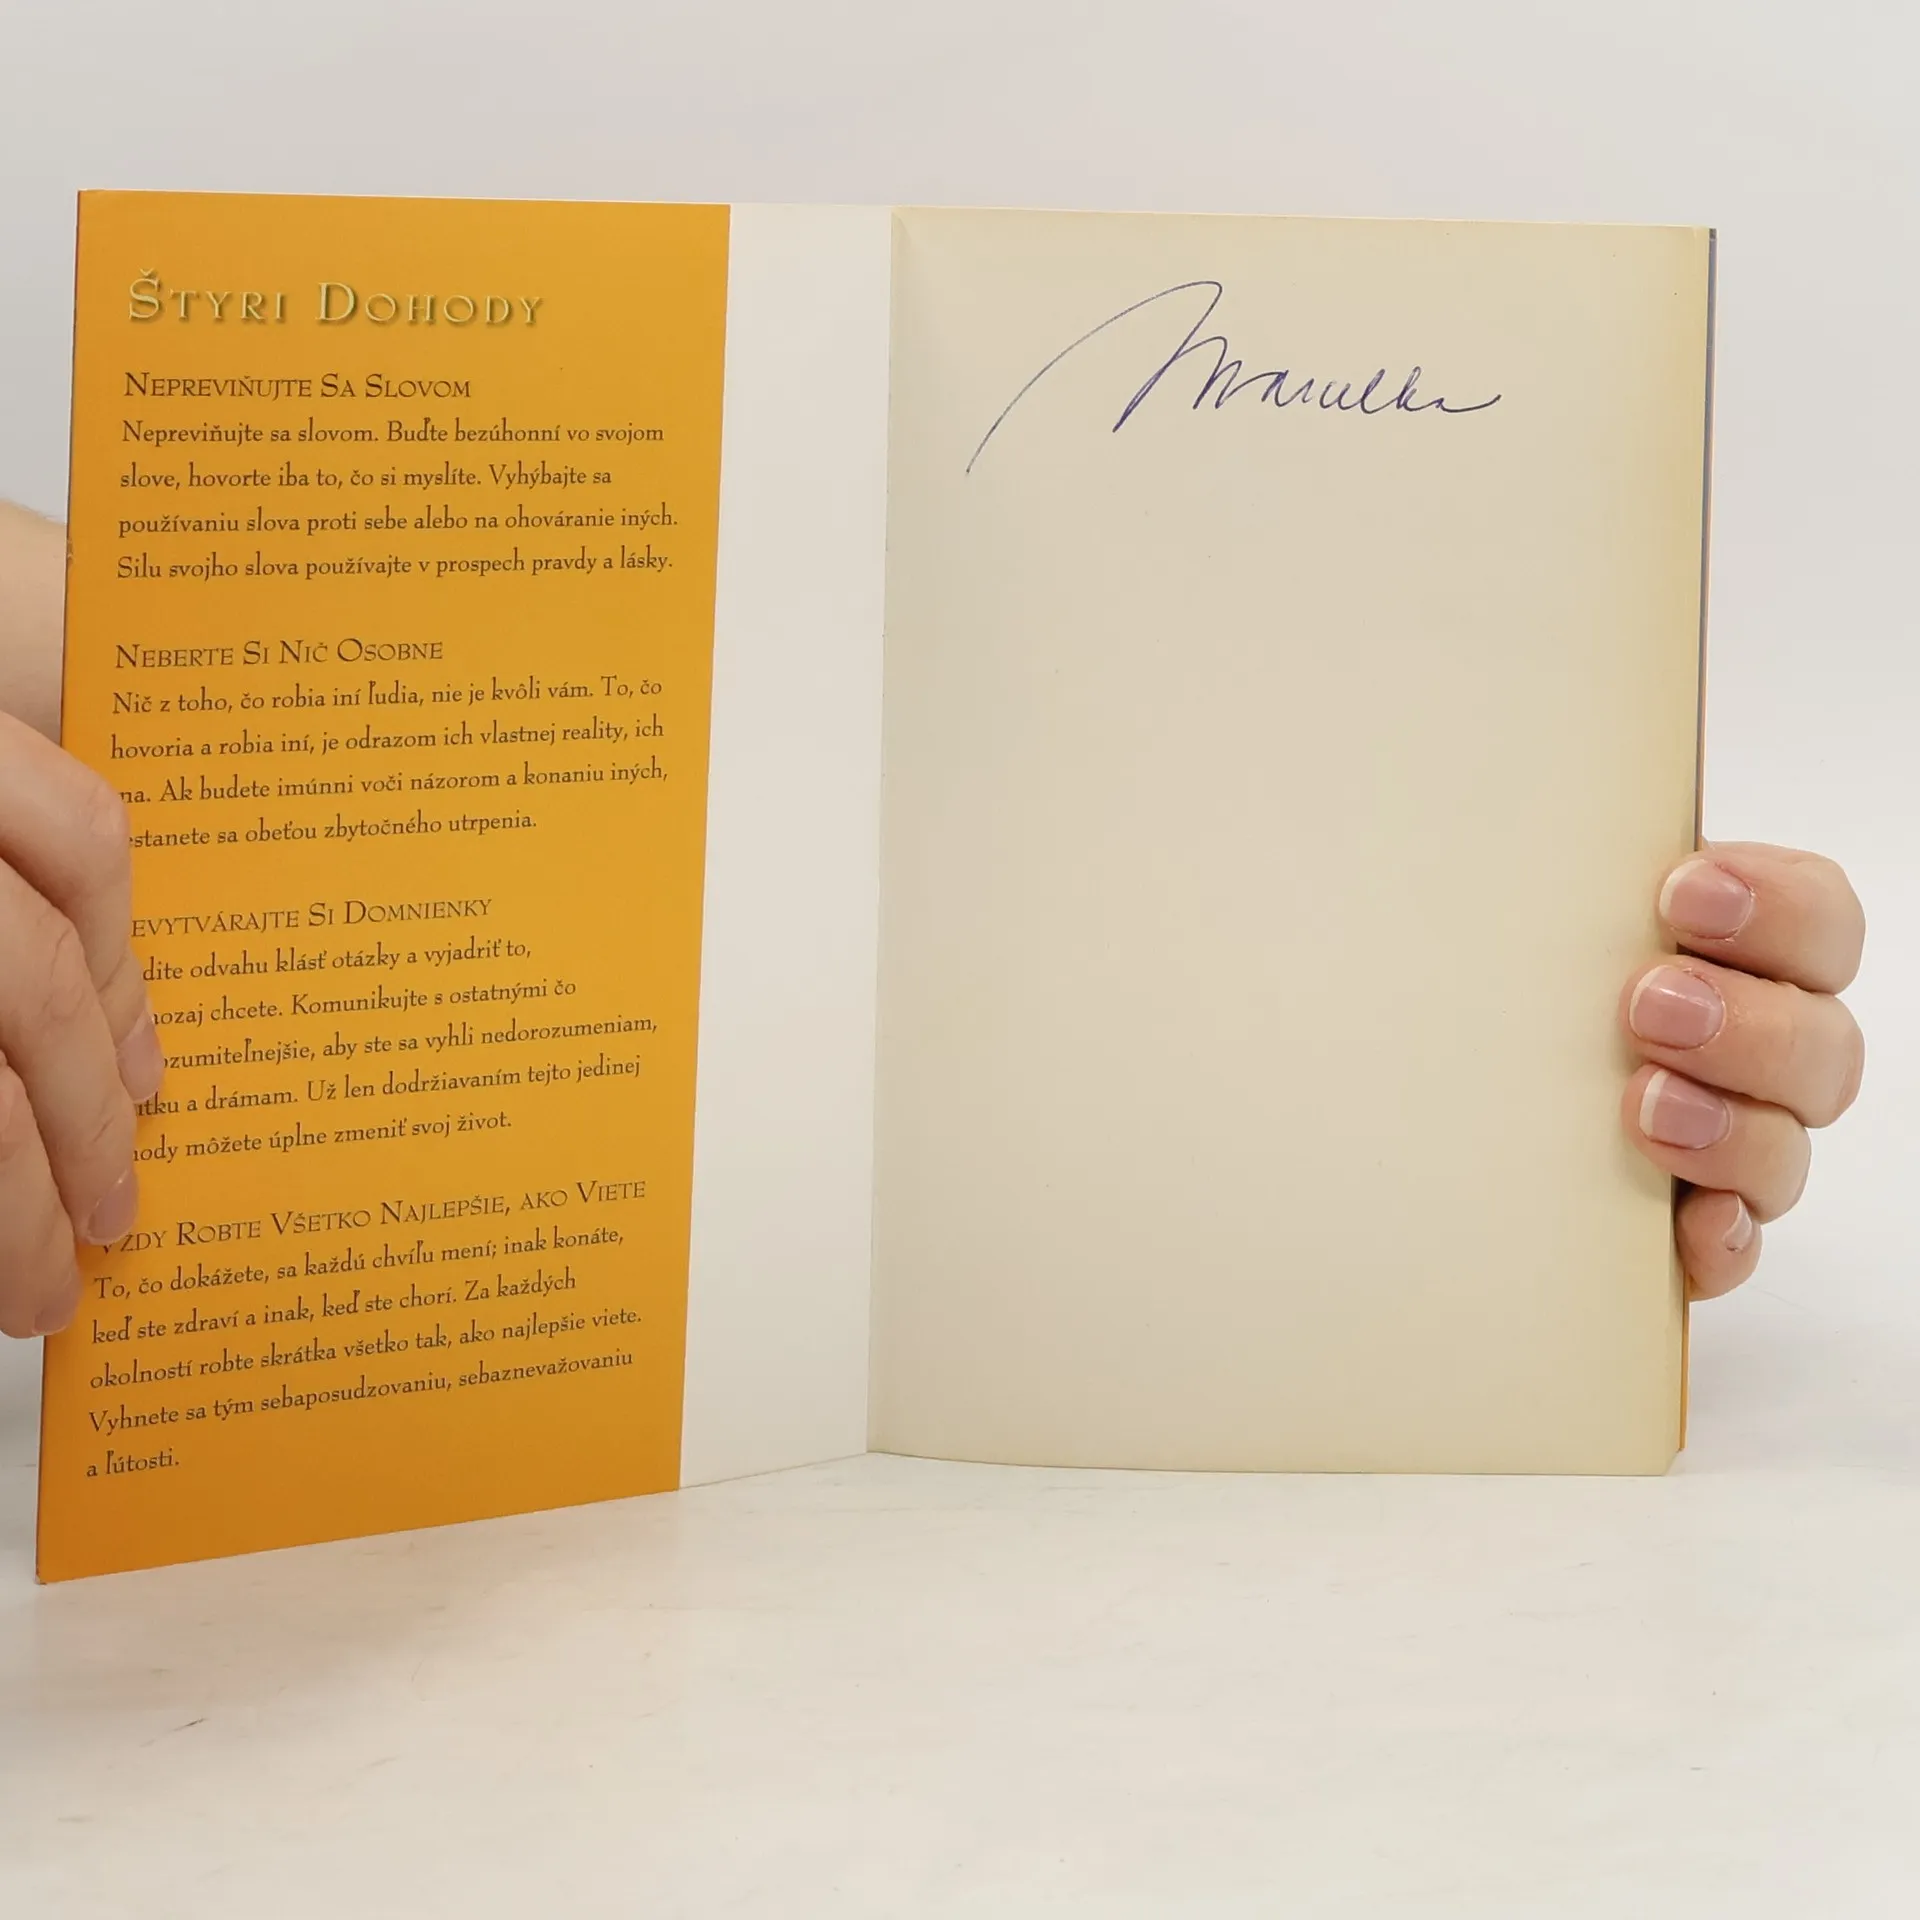 Štyri Dohody
Nepreviňujte Sa Slovom
Nepreviňujte sa slovom. Buďte bezúhonní vo svojom
slove, hovorte iba to, čo si myslíte. Vyhýbajte sa
používaniu slova proti sebe alebo na ohováranie iných.
Silu svojho slova používajte v prospech pravdy a lásky.
Neberte Si Nič Osobne
Nič z toho, čo robia iní ľudia, nie je kvôli vám. To, čo
hovoria a robia iní, je odrazom ich vlastnej reality, ich
na. Ak budete imúnni voči názorom a konaniu iných,
stanete sa obeťou zbytočného utrpenia.
evytvárajte Si Domnienky
dite odvahu klásť otázky a vyjadriť to,
ozaj chcete. Komunikujte s ostatnými čo
zumiteľnejšie, aby ste sa vyhli nedorozumeniam,
tku a drámam. Už len dodržiavaním tejto jedinej
ody môžete úplne zmeniť svoj život.
Vždy Robte Všetko Najlepšie, ako Viete
To, čo dokážete, sa každú chvíľu mení; inak konáte,
keď ste zdraví a inak, keď ste chorí. Za každých
okolností robte skrátka všetko tak, ako najlepšie viete.
Vyhnete sa tým sebaposudzovaniu, sebaznevažovaniu
a ľútosti.